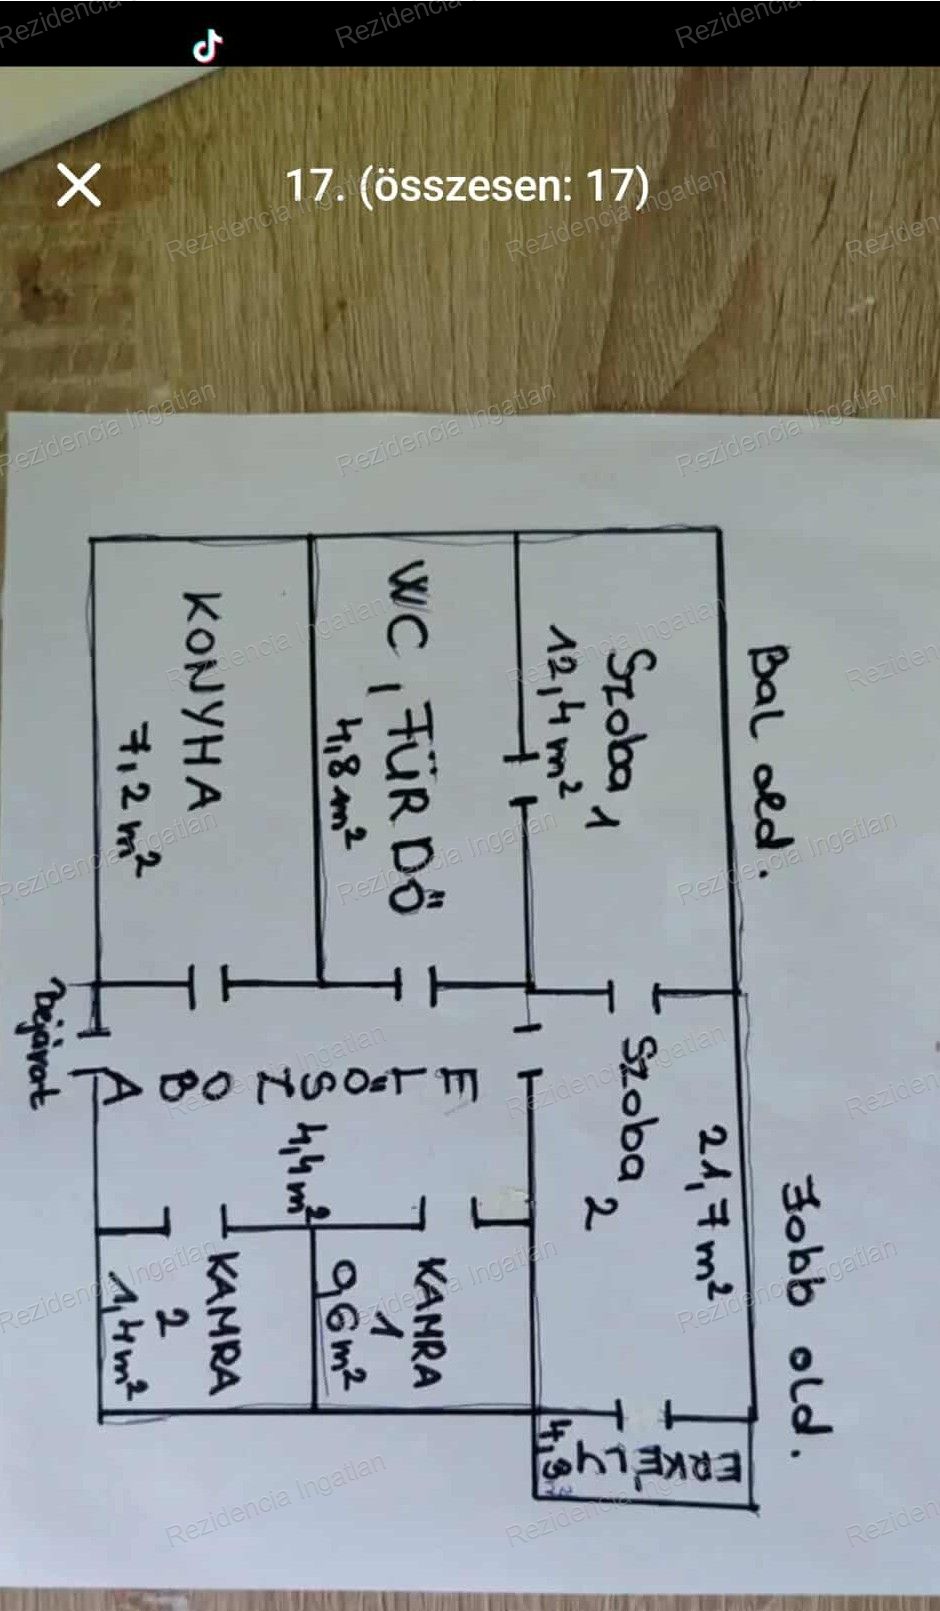 17. (összesen: 17)
Bal old.
Jobb old.
Szoba 1
12,4 m²
21,7 m²
Szoba 2
ERKÉLY
4,3
WC, FÜRDŐ
4,8 m²
KONYHA
7,2 m²
ELŐSZOBA
4,4 m²
KAMRA
1
0,6 m²
KAMRA
2
1,4 m²
bejárat
Rezidencia Ingatlan